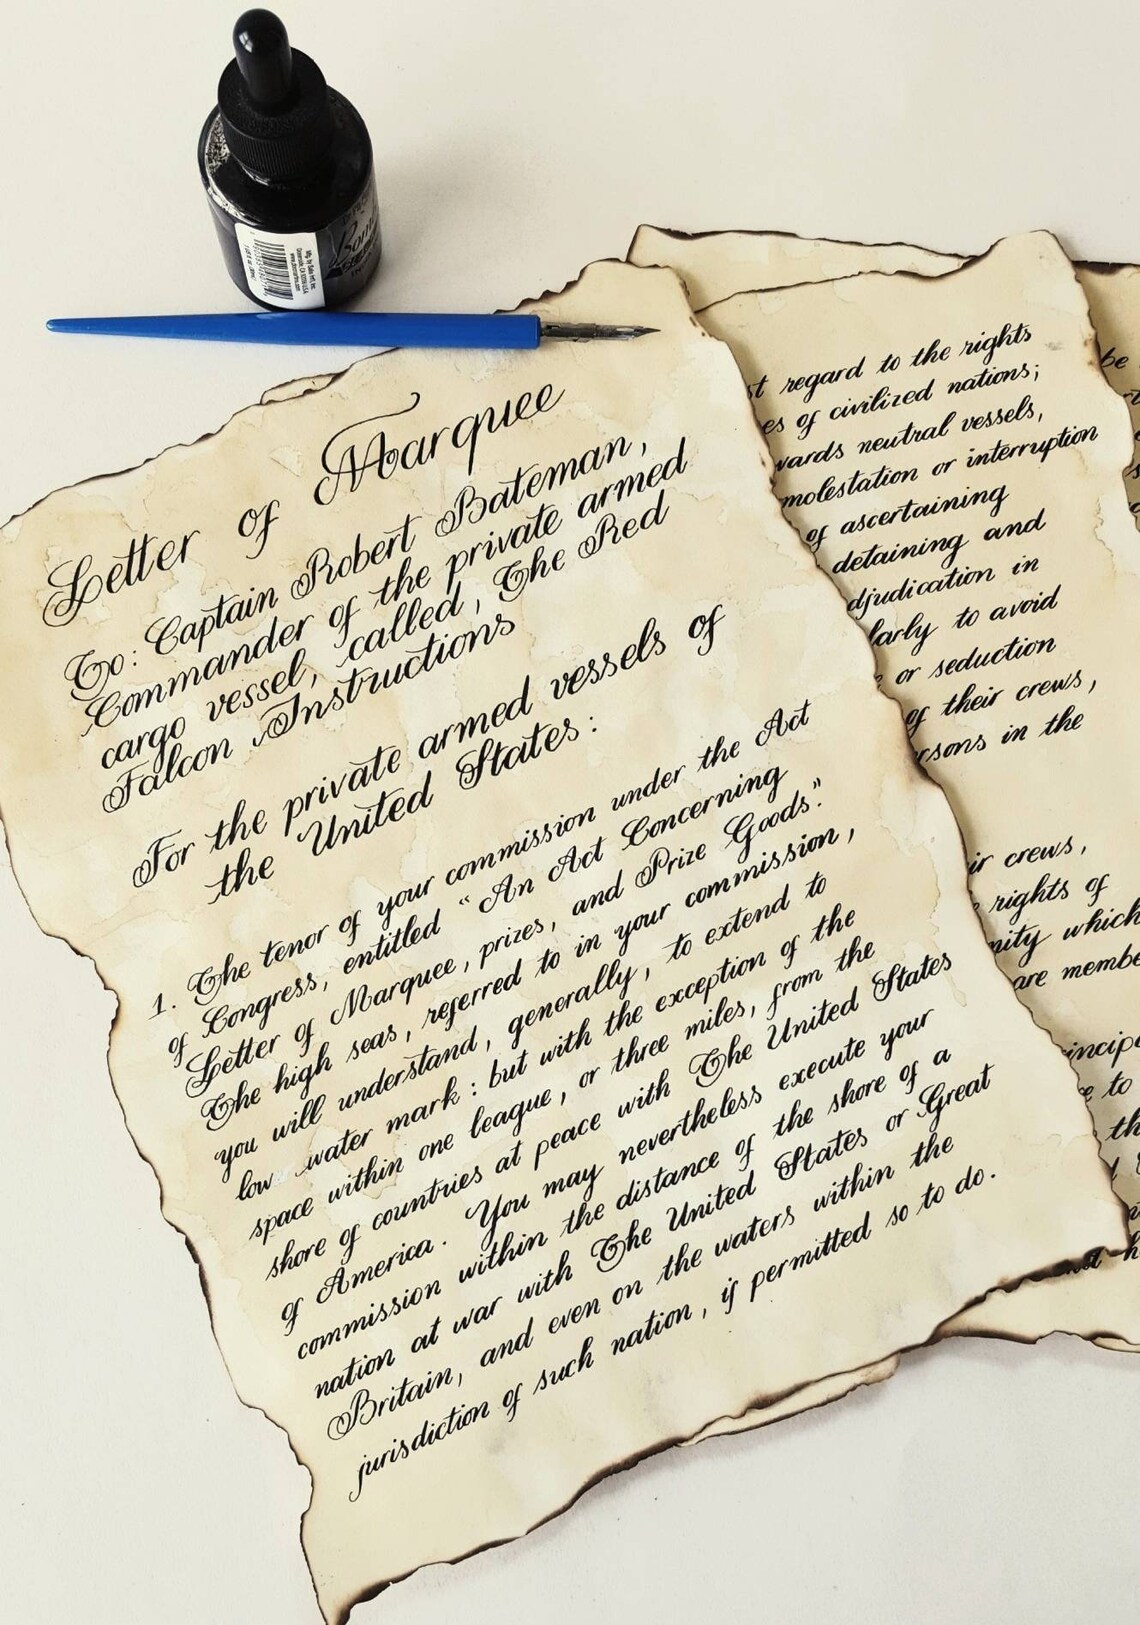 Letter of Marquee
To: Captain Robert Bateman,
Commander of the private armed
cargo vessel, called, The Red
Falcon Instructions
For the private armed vessels of
the United States:
1. The tenor of your commission under the Act
of Congress, entitled "An Act Concerning
Letter of Marquee, prizes, and Prize Goods".
The high seas, referred to in your commission,
you will understand, generally, to extend to
low water mark: but with the exception of the
space within one league, or three miles, from the
shore of countries at peace with The United States
of America. You may nevertheless execute your
commission within the distance of the shore of a
nation at war with The United States or Great
Britain, and even on the waters within the
jurisdiction of such nation, if permitted so to do.
regard to the rights
of civilized nations;
neutral vessels,
molestation or interruption
of ascertaining
detaining and
in
to avoid
or seduction
of their crews,
in the
crews,
rights of
which
are
to